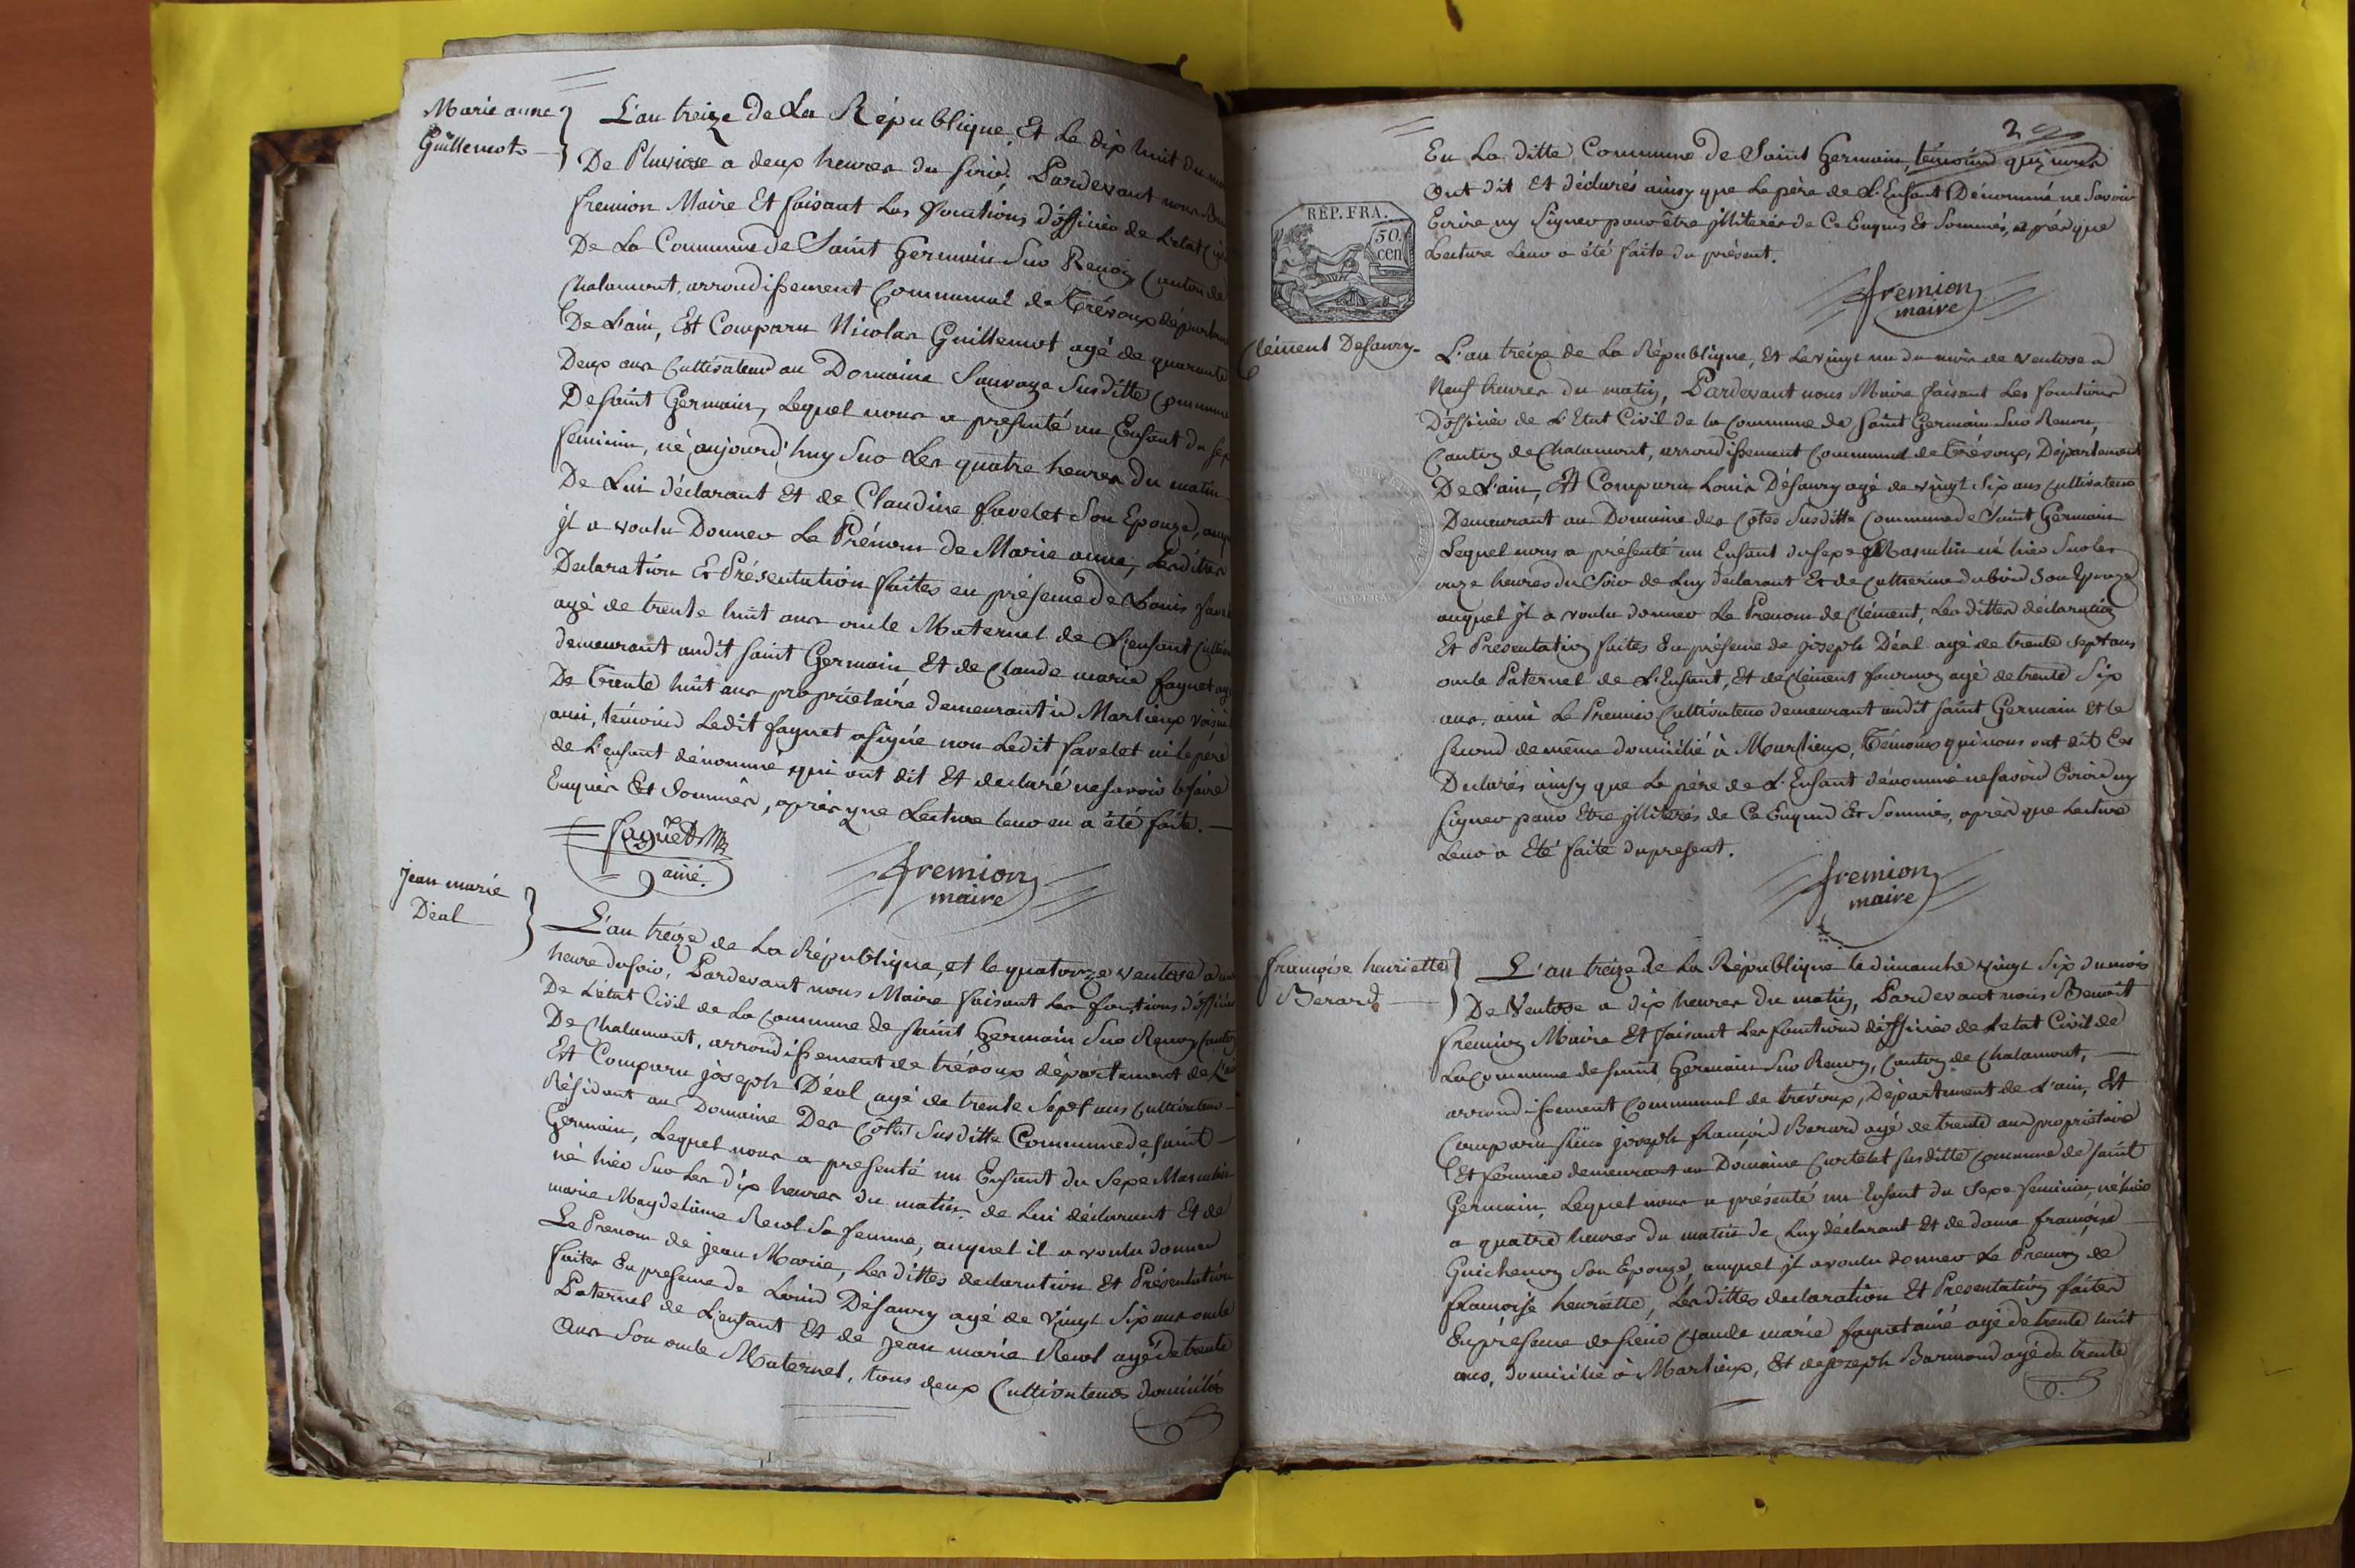 Marie anne
Guillemot
L'an treize de La République, Et Le dix huit du
De Pluviose a deux heures du soir, Pardevant nous
fremion Maire Et faisant Les fonctions d'officier de L'etat
De La Commune de Saint Germain Sur Renon Canton de
Chalamont, arrondissement Communal de Trévoux
De L'ain, Est Comparu Nicolas Guillemot agé de quarante
Deux ans Cultivateur au Domaine Sauvage Susditte Commune
De Saint Germain, Lequel nous a presenté un Enfant du
feminin, né aujourd'huy Sur Les quatre heures du matin
De Lui déclarant Et de Claudine favelet Son Epouze,
jl a voulu Donner Le Prénom de Marie anne, Lesdittes
Declaration Et Présentation faites en présence de Louis
agé de trente huit ans oncle Maternel de L'enfant
demeurant audit Saint Germain Et de Claude marie faguet
De Trente huit ans propriétaire demeurant à Marlieux voisin
ami, témoins Ledit faguet a signé non Ledit favelet ni le père
de L'enfant dénommé qui ont dit Et declaré ne savoir le faire
Enquis Et Sommés, après que Lecture leur en a été faite.
faguet
ainé.
fremion
maire
Jean marie
Déal
L'an treize de La République, et le quatorze ventose a
heure du soir, Pardevant nous Maire faisant Les fonctions d'officier
De L'état Civil de La Commune de Saint Germain Sur Renon Canton
De Chalamont, arrondissement de trévoux département de
Est Comparu joseph Déal agé de trente Sept ans Cultivateur
Résidant au Domaine Des Côtes Susditte Commune de Saint
Germain, Lequel nous a presenté un Enfant du Sexe Masculin
né hier Sur Les dix heures du matin de Lui déclarant Et de
marie Magdelaine Sa femme, auquel il a voulu donner
Le Prenom de jean Marie, Les dittes declaration Et Présentation
faites En presence de Louis Désaury agé de vingt Six ans oncle
Paternel de L'enfant Et de jean marie agé de trente
ans Son oncle Maternel, tous deux Cultivateurs domiciliés
2
En La ditte Commune de Saint Germain, témoins qui nous
Ont dit Et déclarés ainsy que Le père de L'Enfant Dénommé ne Savoir
Ecrire ny Signer pour être jlliterés de Ce Enquis Et Sommés, après que
Lecture Leur a été faite du présent.
RÉP. FRA.
50
cen
fremion
maire
Clément Desaury
L'an treize de La République, Et Le vingt un du mois de ventose a
Neuf heures du matin, Pardevant nous Maire faisant Les fonctions
D'officier de L'Etat Civil de la Commune de Saint Germain Sur Renon,
Canton de Chalamont, arrondissement Communal de Trévoux, Département
De L'ain, Est Comparu Louis Désaury agé de vingt Six ans Cultivateur
Demeurant au Domaine des Côtes Susditte Commune de Saint Germain
Lequel nous a présenté un Enfant du sexe Masculin né hier Sur les
onze heures du Soir de Luy declarant Et de Catherine Son Epouze
auquel jl a voulu donner Le Prenom de Clément, Les dittes déclaration
Et Présentation faites En présence de joseph Déal agé de trente Sept ans
oncle Paternel de L'Enfant, Et de Clément fournon agé de trente Six
ans, ami Le Premier Cultivateur demeurant audit Saint Germain Et le
Second de même domicilié à Marlieux, Témoins qui nous ont dit Et
Declarés ainsy que Le père de L'Enfant dénommé ne savoir Ecrire ny
Signer pour Etre jlliterés de Ce Enquis Et Sommés, après que Lecture
Leur a Eté faite du present.
fremion
maire
françoise henriette
Berard
L'an treize de La République le dimanche vingt Six du mois
De Ventose a dix heures du matin, Pardevant nous Benoit
fremion Maire Et faisant Les fonctions d'officier de L'etat Civil de
La Commune de Saint Germain Sur Renon, Canton de Chalamont,
arrondissement Communal de trévoux, Département de L'ain, Est
Comparu sieur joseph françois Berard agé de trente ans propriétaire
Et fermier demeurant au Domaine Curtelet susditte Commune de Saint
Germain, Lequel nous a présenté un Enfant du Sexe feminin, né hier
a quatre heures du matin de Luy déclarant Et de dame françoise
Guichenon Son Epouze, auquel jl a voulu donner Le Prenom de
françoise henriette, Lesdittes declaration Et Presentation faites
En présence de sieur Claude marie faguet ainé agé de trente huit
ans, domicilié à Marlieux, Et de joseph Barmond agé de trente